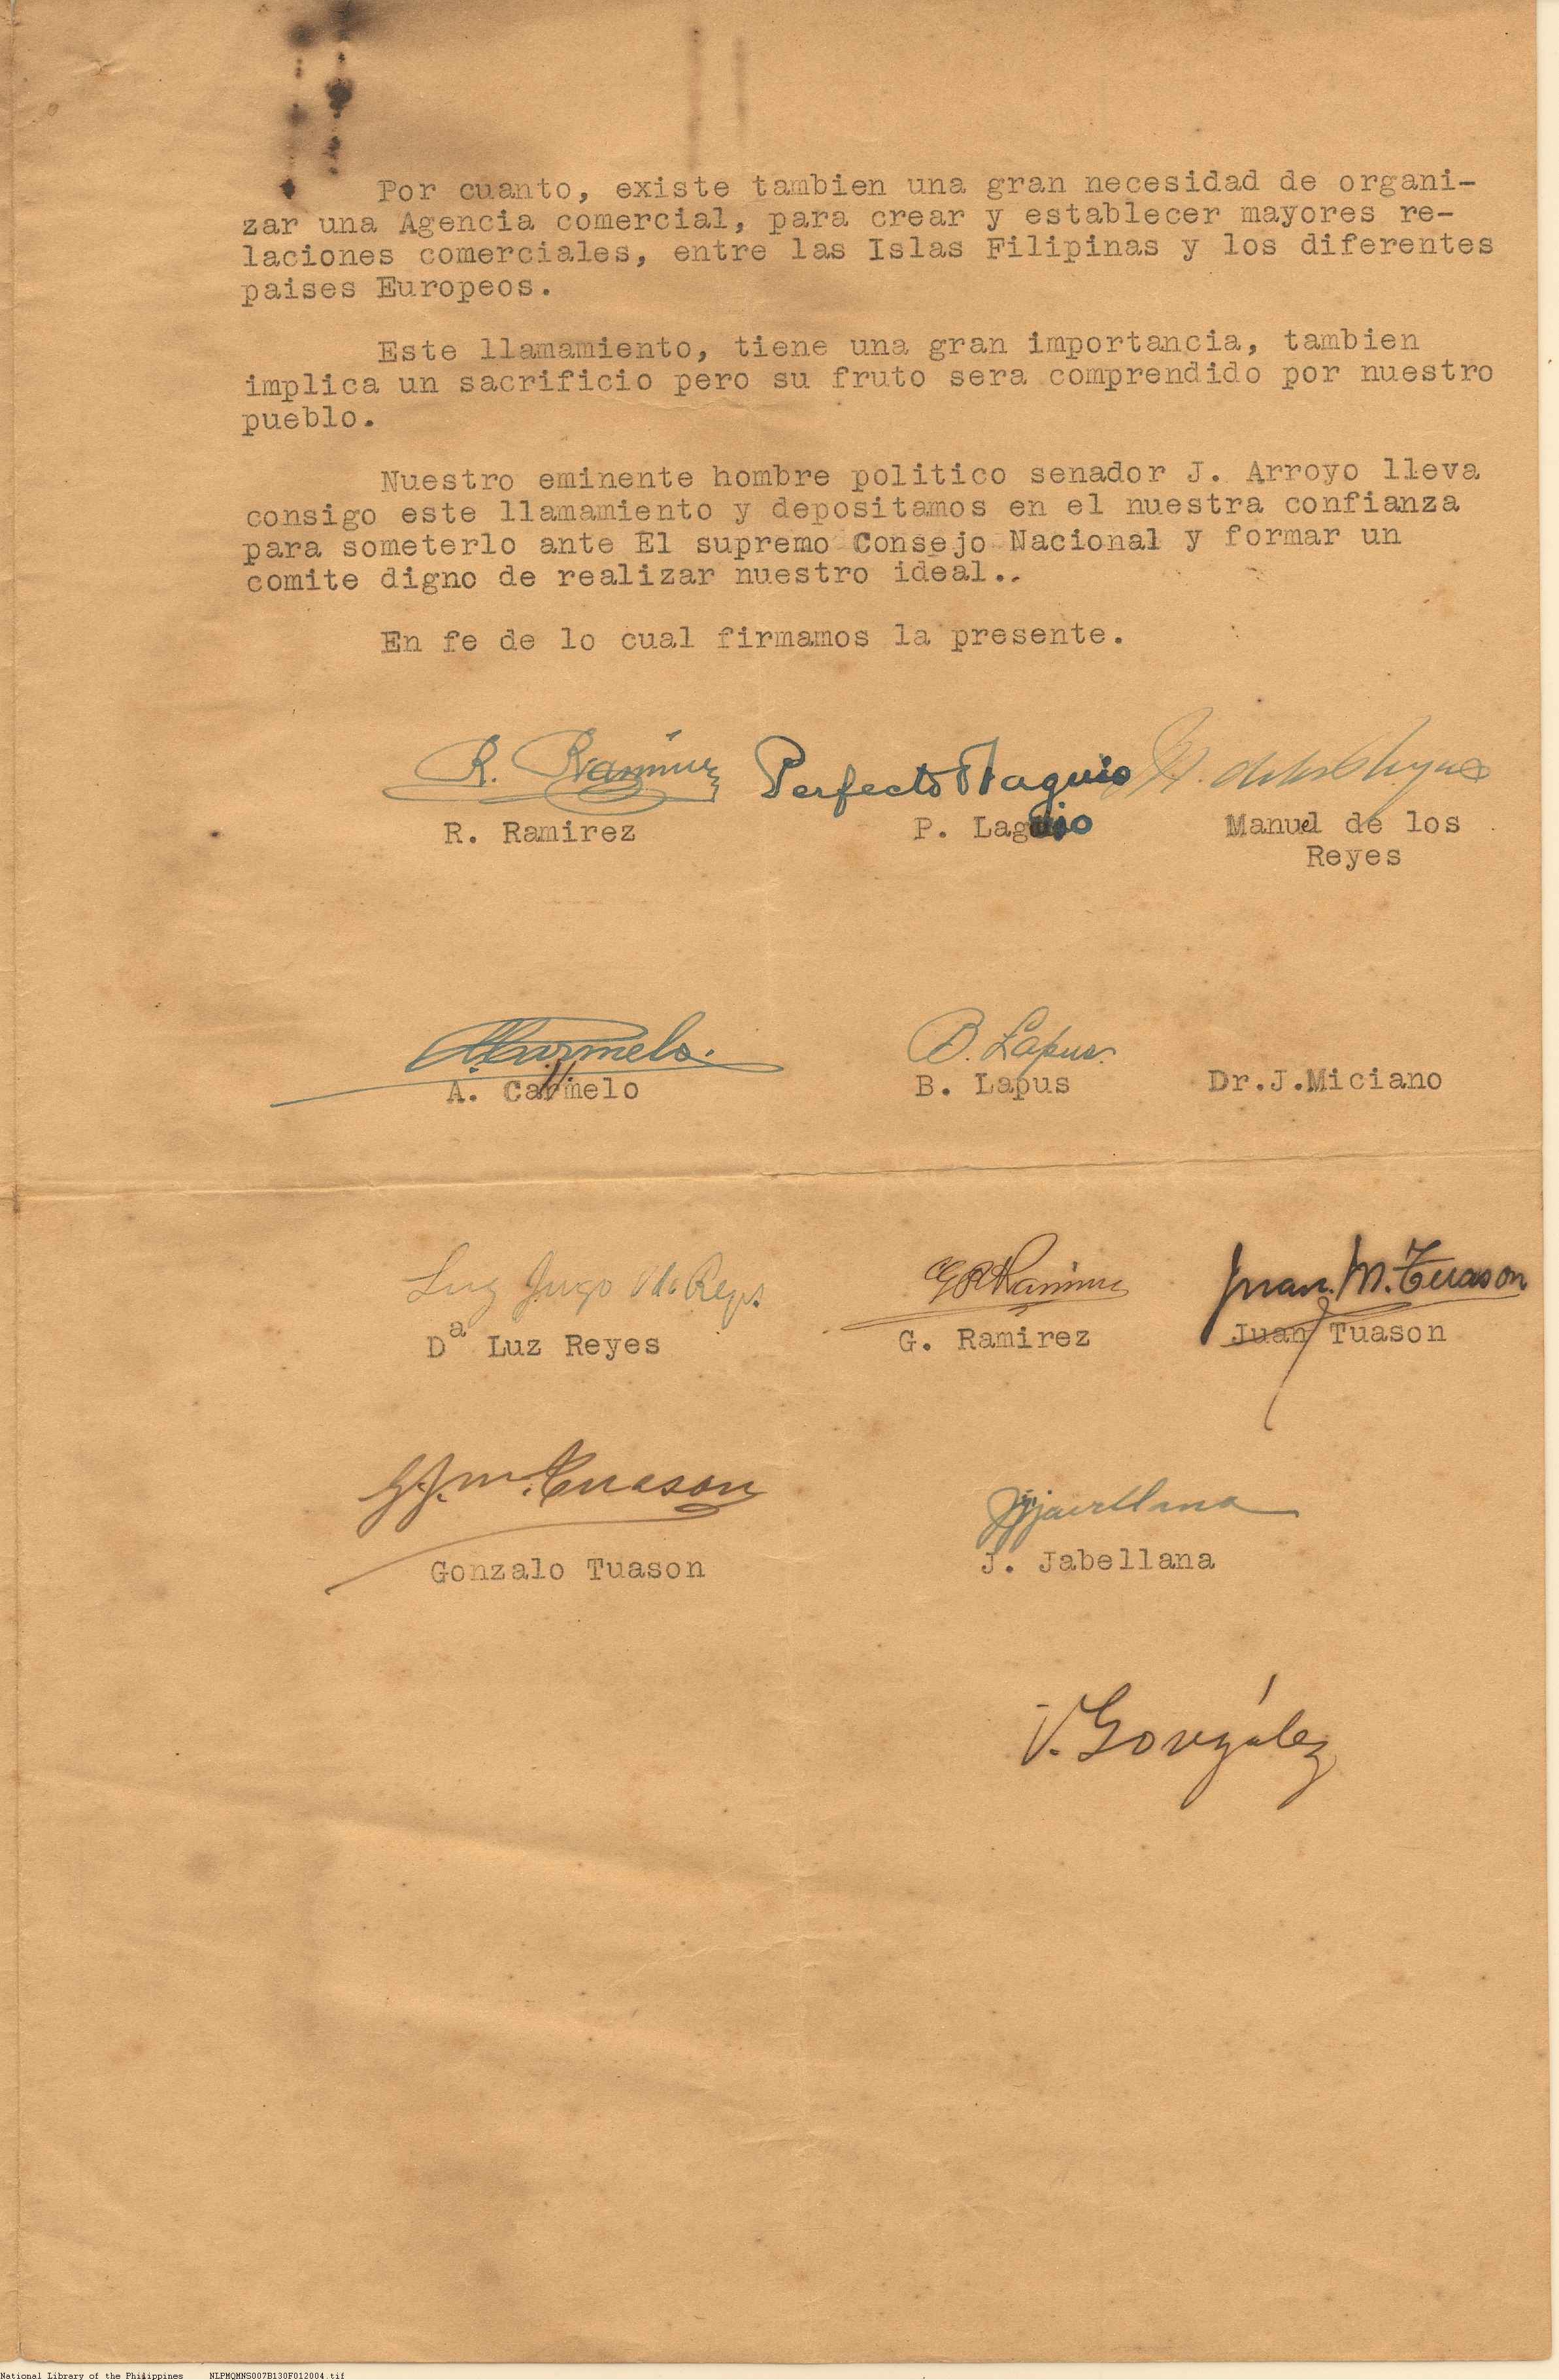 Por cuanto, existe tambien una gran necesidad de organi-
zar una Agencia comercial, para crear y establecer mayores re-
laciones comerciales, entre las Islas Filipinas y los diferentes
paises Europeos.
Este llamamiento, tiene una gran importancia, tambien
implica un sacrificio pero su fruto sera comprendido por nuestro
pueblo.
Nuestro eminente hombre politico senador J. Arroyo lleva
consigo este llamamiento y depositamos en el nuestra confianza
para someterlo ante El supremo Consejo Nacional y formar un
comite digno de realizar nuestro ideal..
En fe de lo cual firmamos la presente.
R. Ramirez Perfecto Laguio M. de los Reyes
R. Ramirez P. Laguio Manuel de los
Reyes
A. Carmelo. B. Lapus.
A. Carmelo B. Lapus Dr.J.Miciano
Luz Jugo Vda Reyes G R Ramirez Juan M. Tuason
Dª Luz Reyes G. Ramirez Juan Tuason
G. J. M. Tuason Javellana
Gonzalo Tuason J. Jabellana
V. González
National Library of the Philippines NLPMQMNS007B130F012004.tif